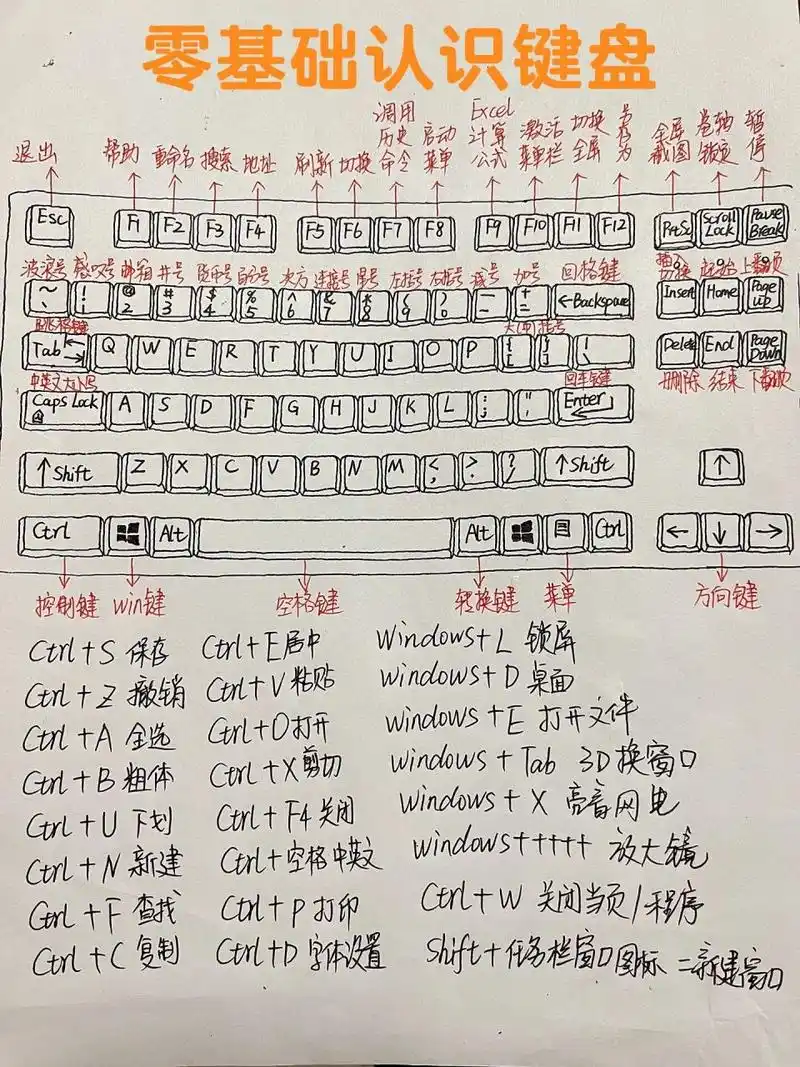 零基础认识键盘
退出 帮助 重命名 搜索 地址 刷新 切换 调用历史命令 启动菜单 Excel计算公式 激活菜单栏 切换全屏 另存为 全屏截图 卷轴锁定 暂停
Esc F1 F2 F3 F4 F5 F6 F7 F8 F9 F10 F11 F12 PrtSc Scroll Lock Pause Break
波浪号 感叹号 邮箱 井号 货币号 百分号 次方 连接号 星号 左括号 右括号 减号 加号 回格键 起始 上翻页
~ ` ! 1 @ 2 # 3 $ 4 % 5 ^ 6 & 7 * 8 ( 9 ) 0 _ - + = ←Backspace Insert Home Page up
跳格键 大(中)括号
Tab Q W E R T Y U I O P { [ } ] | \ Delete End Page Down
中英文大小写 回车键 删除 结束 下翻页
Caps Lock A S D F G H J K L : ; " ' Enter
↑Shift Z X C V B N M < , > . ? / ↑Shift ↑
Ctrl Alt Alt Ctrl ← ↓ →
控制键 win键 空格键 转换键 菜单 方向键
Ctrl+S 保存 Ctrl+E居中 Windows+L 锁屏
Ctrl+Z 撤销 Ctrl+V粘贴 windows+D 桌面
Ctrl+A 全选 Ctrl+O打开 windows+E 打开文件
Ctrl+B 粗体 Ctrl+X剪切 windows+Tab 3D换窗口
Ctrl+U 下划 Ctrl+F4关闭 windows+X 亮音网电
Ctrl+N 新建 Ctrl+空格中英文 windows+++++ 放大镜
Ctrl+F 查找 Ctrl+P打印 Ctrl+W 关闭当页/程序
Ctrl+C 复制 Ctrl+D 字体设置 Shift+任务栏窗口图标=新建窗口